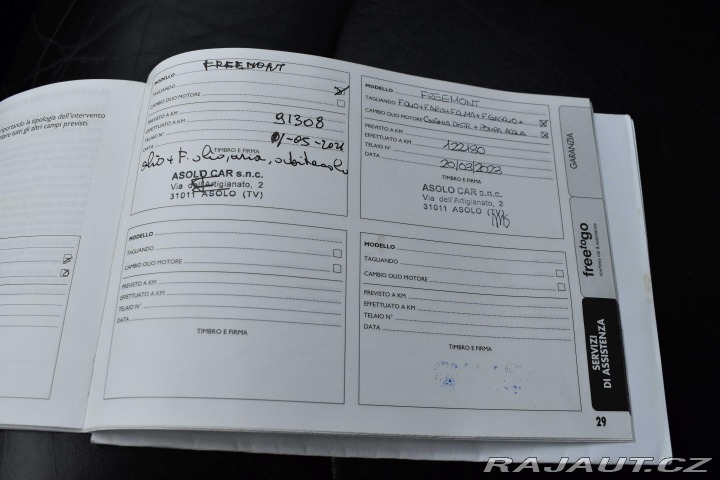 portando la tipologia dell'intervento
tare tutti gli altri campi previsti.
MODELLO FREEMONT
TAGLIANDO
CAMBIO OLIO MOTORE
PREVISTO A KM
EFFETTUATO A KM 91308
TELAIO N°
DATA 01-05-2021
TIMBRO E FIRMA
olio + F. olio, aria,
ASOLO CAR s.n.c.
Via dell'Artigianato, 2
31011 ASOLO (TV)
MODELLO FREEMONT
TAGLIANDO
CAMBIO OLIO MOTORE CINGHIA DISTR. + POMPA ACQUA
PREVISTO A KM
EFFETTUATO A KM 122180
TELAIO N°
DATA 20/03/2023
TIMBRO E FIRMA
ASOLO CAR s.n.c.
Via dell'Artigianato, 2
31011 ASOLO (TV)
MODELLO
TAGLIANDO
CAMBIO OLIO MOTORE
PREVISTO A KM
EFFETTUATO A KM
TELAIO N°
DATA
TIMBRO E FIRMA
MODELLO
TAGLIANDO
CAMBIO OLIO MOTORE
PREVISTO A KM
EFFETTUATO A KM
TELAIO N°
DATA
TIMBRO E FIRMA
GARANZIA
freetogo
SERVIZI
DI ASSISTENZA
29
RAJAUT.CZ